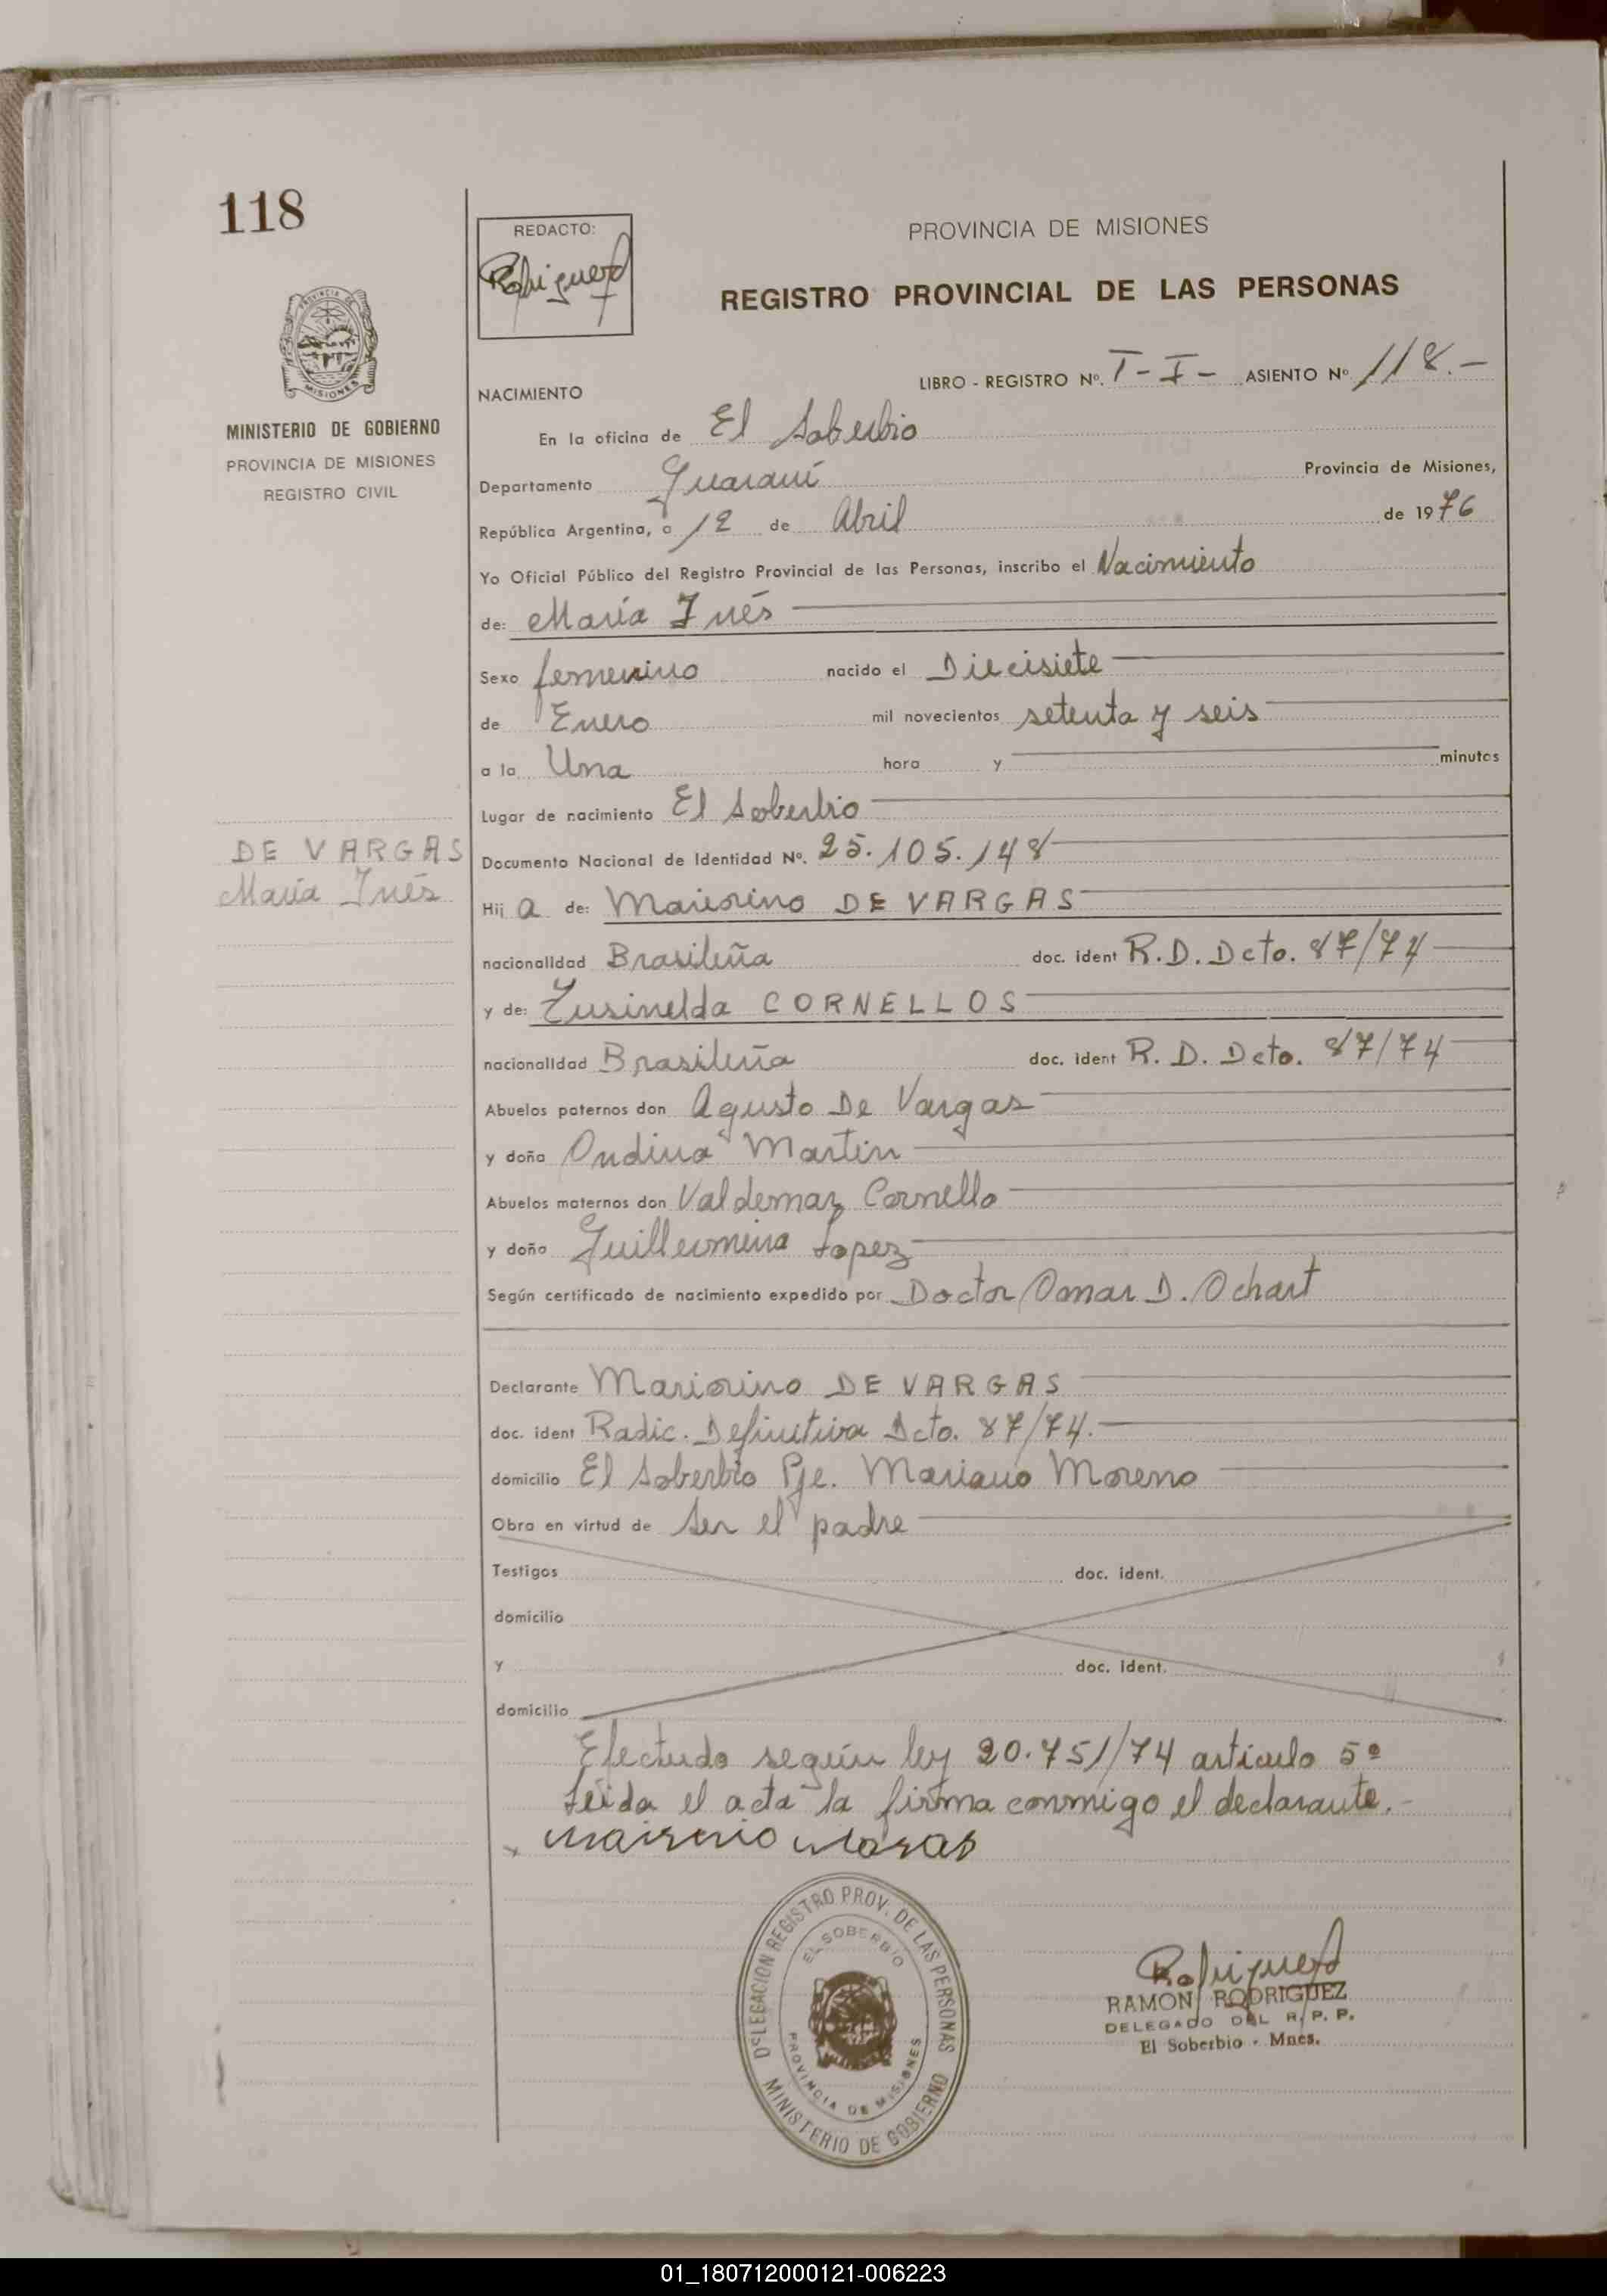 118
REDACTO:
Rodriguez
PROVINCIA DE MISIONES
REGISTRO PROVINCIAL DE LAS PERSONAS
LIBRO - REGISTRO Nº. T - I - ASIENTO Nº 118.-
NACIMIENTO
MISIONES
MINISTERIO DE GOBIERNO
PROVINCIA DE MISIONES
REGISTRO CIVIL
En la oficina de El Soberbio
Departamento Guaraní Provincia de Misiones,
República Argentina, a 12 de Abril de 1976
Yo Oficial Público del Registro Provincial de las Personas, inscribo el Nacimiento
de: María Inés
Sexo femenino nacido el Diecisiete
de Enero mil novecientos setenta y seis
a la Una hora y minutos
Lugar de nacimiento El Soberbio
DE VARGAS
María Inés
Documento Nacional de Identidad Nº. 25.105.148
Hij a de: Mariorino DE VARGAS
nacionalidad Brasileña doc. ident R.D. Dcto. 87/74
y de: Zusinelda CORNELLOS
nacionalidad Brasileña doc. ident R. D. Dcto. 87/74
Abuelos paternos don Agusto De Vargas
y doña Ondina Martin
Abuelos maternos don Valdemar Cornello
y doña Guillermina Lopez
Según certificado de nacimiento expedido por Doctor Omar D. Ochart
Declarante Mariorino DE VARGAS
doc. ident Radic. Definitiva Dcto. 87/74.
domicilio El Soberbio Pje. Mariano Moreno
Obra en virtud de Ser el padre
Testigos doc. ident.
domicilio
y doc. ident.
domicilio
Efectudo según ley 20.751/74 artículo 5º
Leida el acta la firma conmigo el declarante.-
DELEGACION REGISTRO PROV. DE LAS PERSONAS
EL SOBERBIO
PROVINCIA DE MISIONES
MINISTERIO DE GOBIERNO
Rodriguez
RAMON RODRIGUEZ
DELEGADO DEL R. P. P.
El Soberbio - Mnes.
01_180712000121-006223